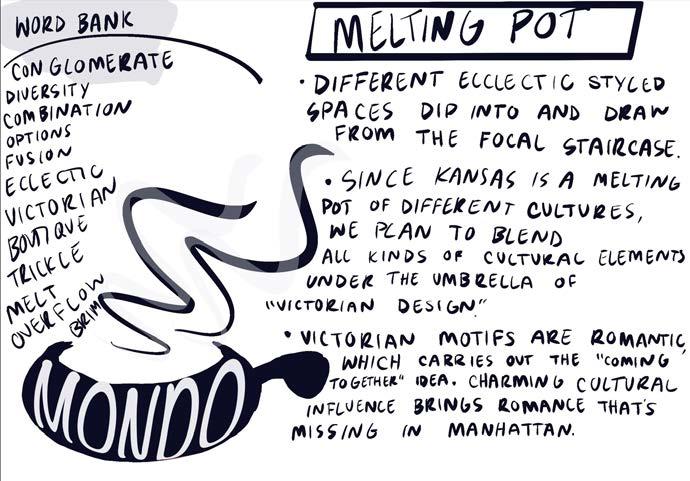 WORD BANK
CONGLOMERATE
DIVERSITY
COMBINATION
OPTIONS
FUSION
ECLECTIC
VICTORIAN
BOUTIQUE
TRICKLE
MELT
OVERFLOW
BRIM
MONDO
MELTING POT
• DIFFERENT ECCLECTIC STYLED
SPACES DIP INTO AND DRAW
FROM THE FOCAL STAIRCASE.
• SINCE KANSAS IS A MELTING
POT OF DIFFERENT CULTURES,
WE PLAN TO BLEND
ALL KINDS OF CULTURAL ELEMENTS
UNDER THE UMBRELLA OF
"VICTORIAN DESIGN."
• VICTORIAN MOTIFS ARE ROMANTIC,
WHICH CARRIES OUT THE "COMING
TOGETHER" IDEA. CHARMING CULTURAL
INFLUENCE BRINGS ROMANCE THAT'S
MISSING IN MANHATTAN.